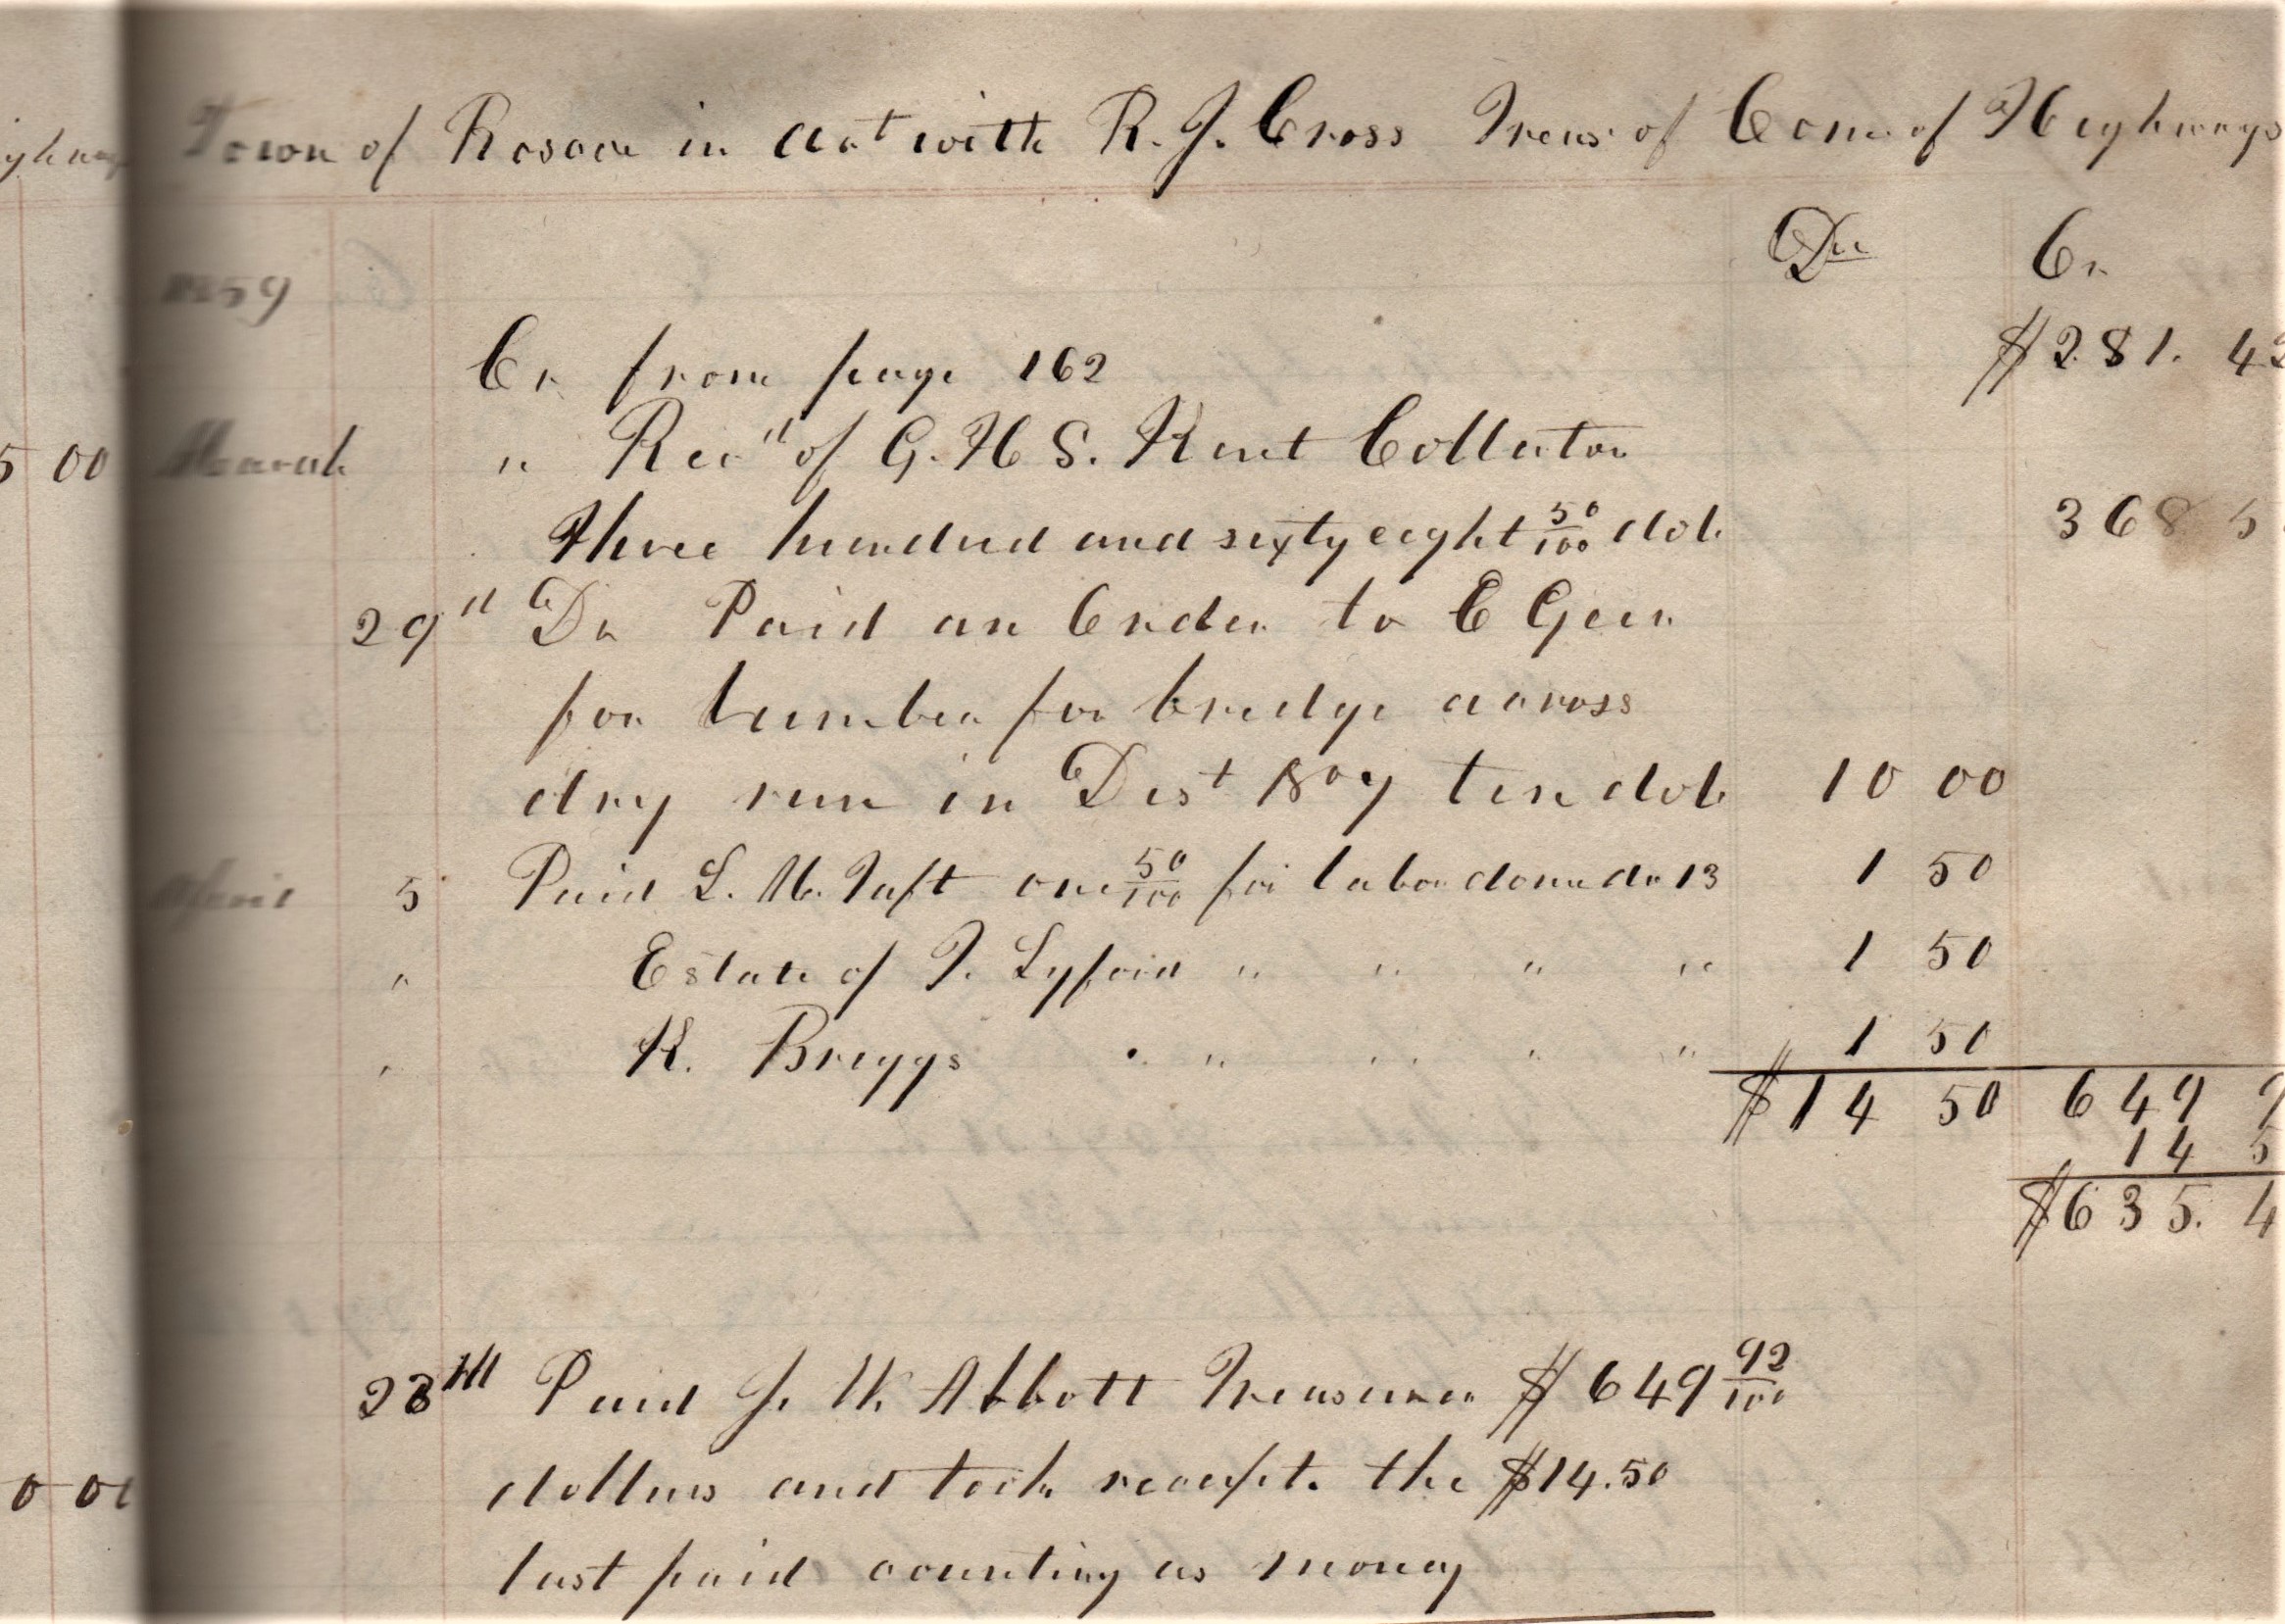 Town of Roscoe in act with R. J. Cross Treas. of Com. of Highways
Dr Cr
1859
Cr from page 162 $281. 42
March " Recd of G. H S. Kent Collector
three hundred and sixty eight 50/100 dol. 368 5
29th Dr Paid an Order to E Geer
for Lumber for bridge across
dry run in Dist No 7 ten dols 10 00
5 00
April 5 Paid L. M. Taft one 50/100 for labor done do 13 1 50
" Estate of J. Lyford " " " " 1 50
" R. Briggs " " " " " 1 50
$14 50 649 9
14 5
$635. 4
28th Paid J. W. Abbott Treasurer $649 92/100
dollars and took receipt. the $14.50
last paid counting as money
0 00